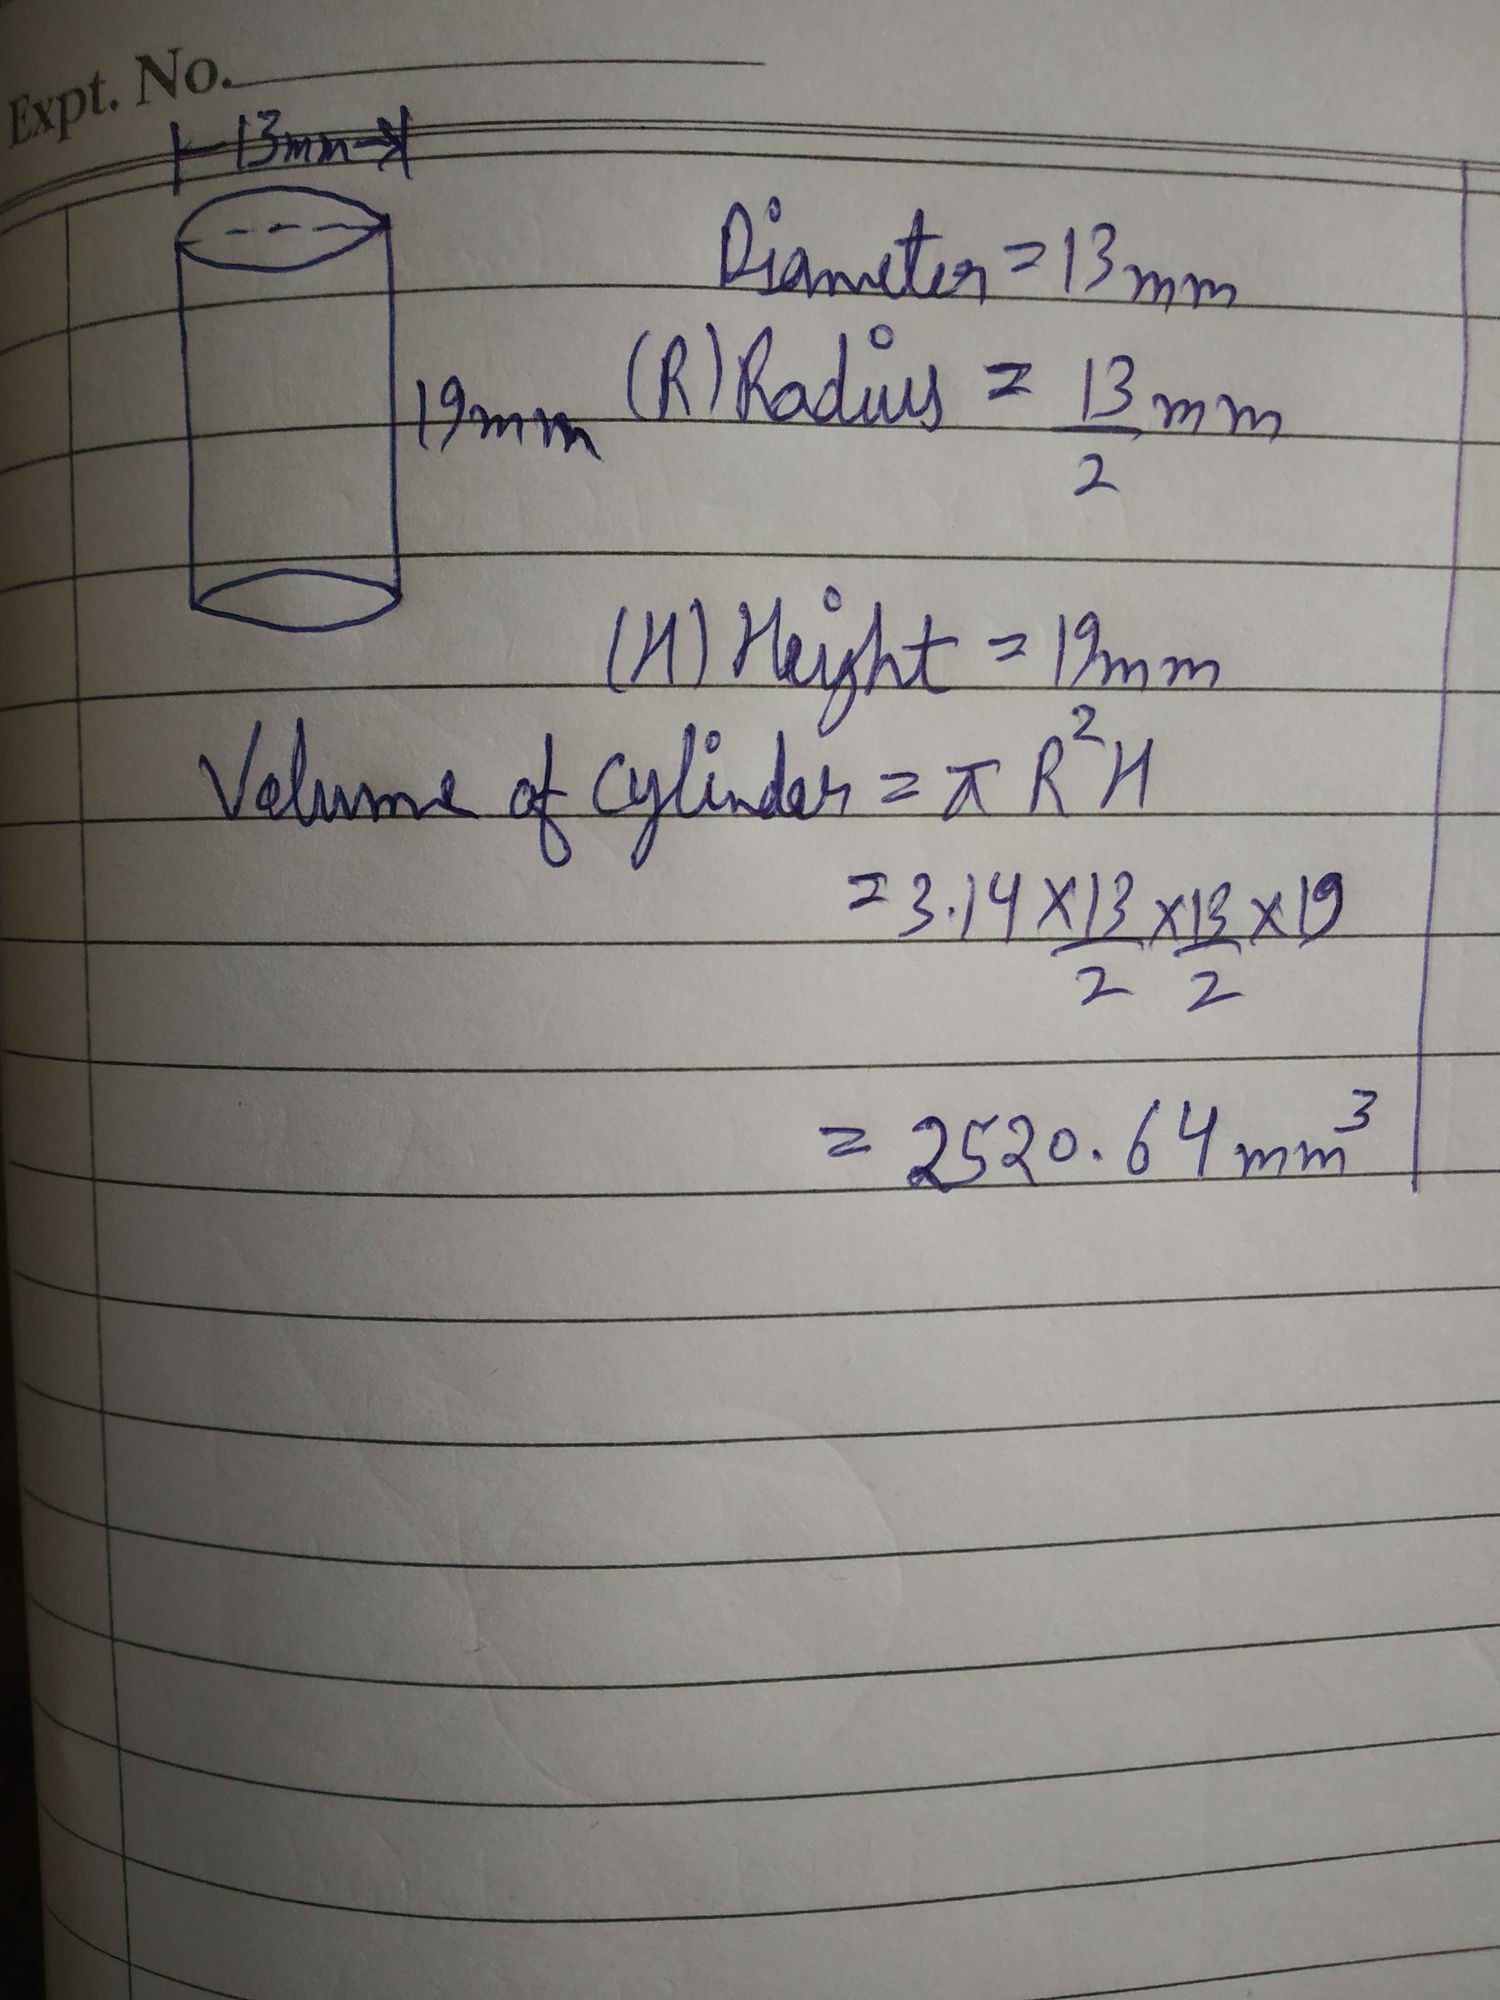 Expt. No.
13mm
Diameter = 13mm
(R) Radius = 13/2 mm
19mm
(H) Height = 19mm
Volume of cylinder = π R²H
= 3.14 × 13/2 × 13/2 × 19
= 2520.64 mm³